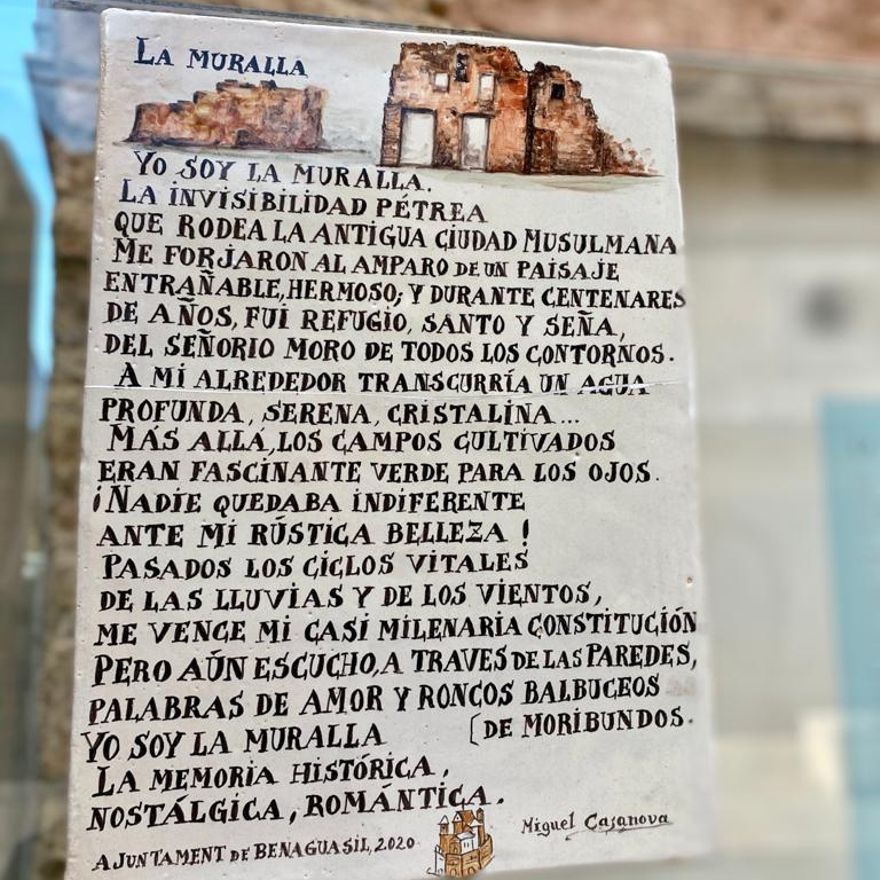 LA MURALLA
YO SOY LA MURALLA.
LA INVISIBILIDAD PÉTREA
QUE RODEA LA ANTIGUA CIUDAD MUSULMANA
ME FORJARON AL AMPARO DE UN PAISAJE
ENTRAÑABLE, HERMOSO; Y DURANTE CENTENARES
DE AÑOS, FUI REFUGIO, SANTO Y SEÑA,
DEL SEÑORIO MORO DE TODOS LOS CONTORNOS.
A MI ALREDEDOR TRANSCURRÍA UN AGUA
PROFUNDA, SERENA, CRISTALINA...
MÁS ALLÁ, LOS CAMPOS CULTIVADOS
ERAN FASCINANTE VERDE PARA LOS OJOS.
¡NADIE QUEDABA INDIFERENTE
ANTE MI RÚSTICA BELLEZA!
PASADOS LOS CICLOS VITALES
DE LAS LLUVIAS Y DE LOS VIENTOS,
ME VENCE MI CASI MILENARIA CONSTITUCIÓN
PERO AÚN ESCUCHO, A TRAVES DE LAS PAREDES,
PALABRAS DE AMOR Y RONCOS BALBUCEOS
[DE MORIBUNDOS.
YO SOY LA MURALLA
LA MEMORIA HISTÓRICA,
NOSTÁLGICA, ROMÁNTICA.
AJUNTAMENT DE BENAGUASIL, 2020
Miguel Casanova